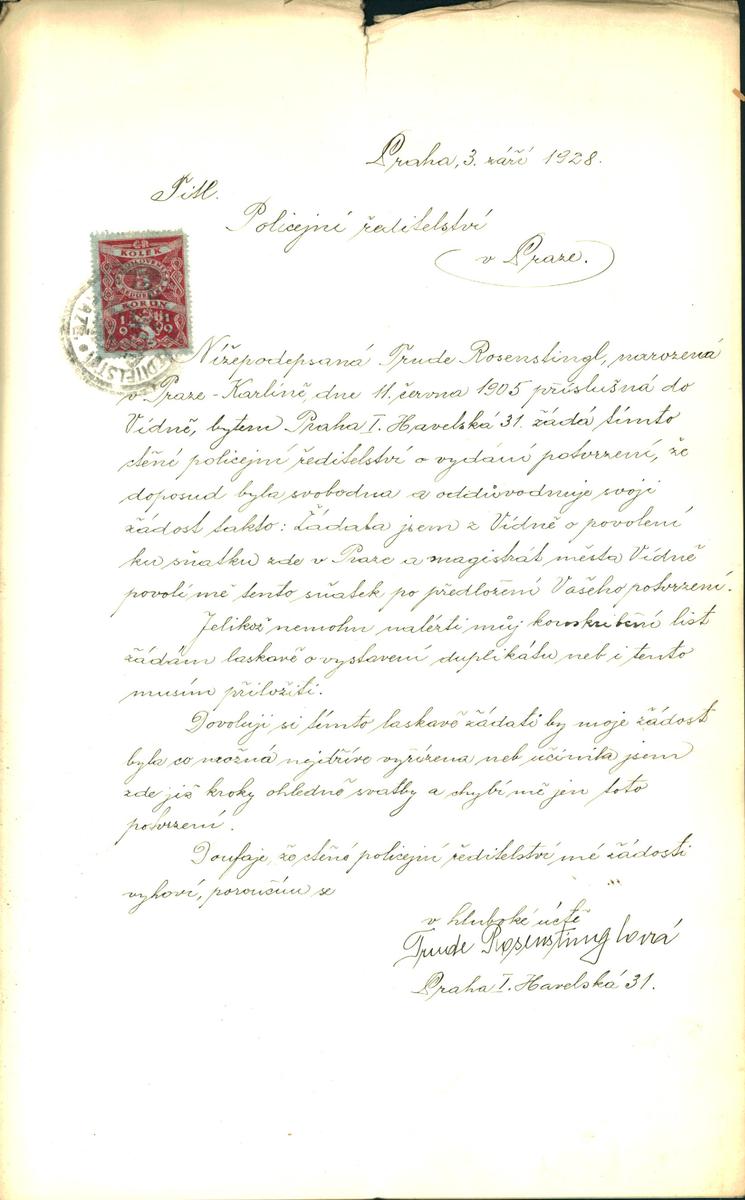 Praha, 3. září 1928.
Titl.
Policejní ředitelství
v Praze.
ČR
KOLEK
KORUN
Nížepodepsaná Trude Rosenstingl, narozená
v Praze-Karlíně, dne 11. června 1905 příslušná do
Vídně, bytem Praha I. Havelská 31. žádá tímto
ctění policejní ředitelství o vydání potvrzení, že
doposud byla svobodna a oddůvodnuje svoji
žádost takto: Žádala jsem z Vídně o povolení
ku sňatku zde v Praze a magistrát města Vídně
povolí mě tento sňatek po předložení Vašeho potvrzení.
Jelikož nemohu nalézti můj konskribční list
žádám laskavě o vystavení duplikátu neb i tento
musím přiložiti.
Dovoluji si tímto laskavě žádati by moje žádost
byla co možná nejdříve vyřízena neb učinila jsem
zde již kroky ohledně svatby a chybí mě jen toto
potvrzení.
Doufaje, že ctěné policejní ředitelství mé žádosti
vyhoví, poroučím se
v hluboké úctě
Trude Rosenstinglová
Praha I. Havelská 31.